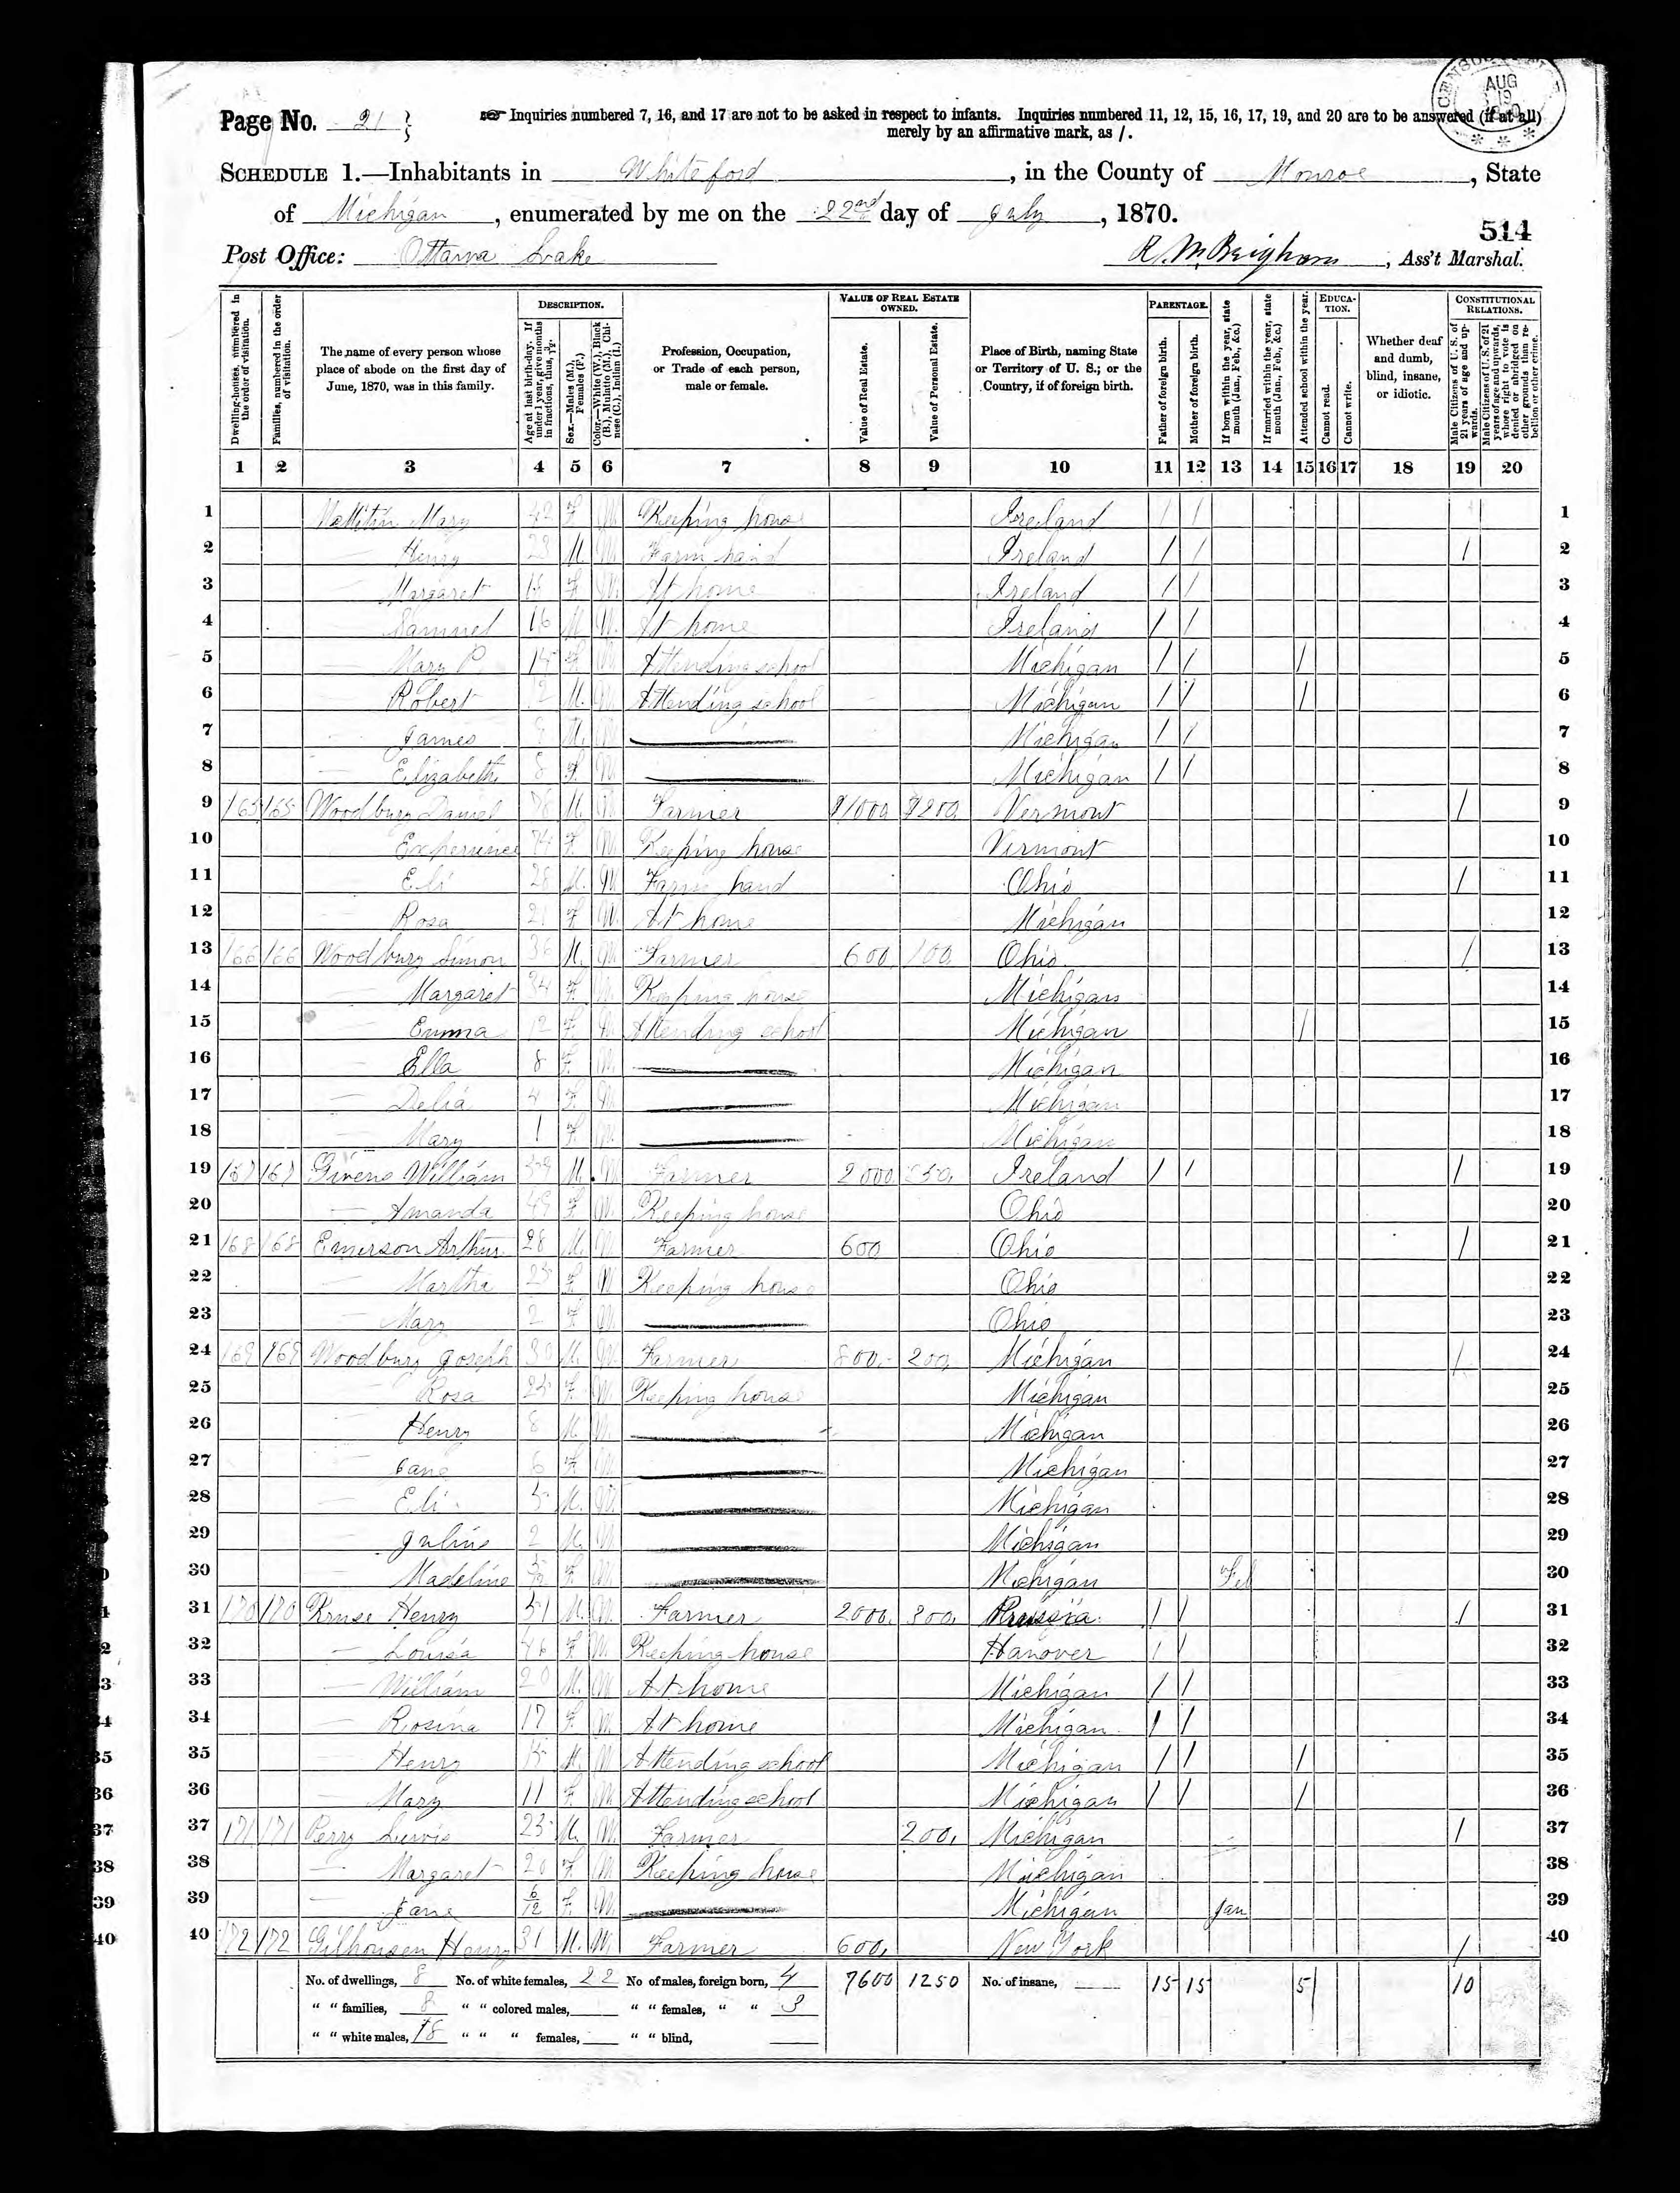 Page No. 21 } Inquiries numbered 7, 16, and 17 are not to be asked in respect to infants. Inquiries numbered 11, 12, 15, 16, 17, 19, and 20 are to be answered (if at all)
merely by an affirmative mark, as /.
AUG
19
SCHEDULE 1.—Inhabitants in Whiteford, in the County of Monroe, State
of Michigan, enumerated by me on the 22nd day of July, 1870.
514
Post Office: Ottawa Lake R. M. Brigham, Ass't Marshal.
Dwelling-houses, numbered in the order of visitation.
Families, numbered in the order of visitation.
The name of every person whose place of abode on the first day of June, 1870, was in this family.
DESCRIPTION.
Age at last birth-day. If under 1 year, give months in fractions, thus, 3/12.
Sex.—Males (M.), Females (F.)
Color.—White (W.), Black (B.), Mulatto (M.), Chinese (C.), Indian (I.)
Profession, Occupation, or Trade of each person, male or female.
VALUE OF REAL ESTATE OWNED.
Value of Real Estate.
Value of Personal Estate.
Place of Birth, naming State or Territory of U. S.; or the Country, if of foreign birth.
PARENTAGE.
Father of foreign birth.
Mother of foreign birth.
If born within the year, state month (Jan., Feb., &c.)
If married within the year, state month (Jan., Feb., &c.)
Attended school within the year.
EDUCATION.
Cannot read.
Cannot write.
Whether deaf and dumb, blind, insane, or idiotic.
CONSTITUTIONAL RELATIONS.
Male Citizens of U. S. of 21 years of age and upwards.
Male Citizens of U. S. of 21 years of age and upwards, whose right to vote is denied or abridged on other grounds than rebellion or other crime.
1 2 3 4 5 6 7 8 9 10 11 12 13 14 15 16 17 18 19 20
1 Mary 42 F W Keeping house Ireland / / 1
2 Henry 23 M W Farm hand Ireland / / / 2
3 Margaret F W At home Ireland / / 3
4 Samuel 16 M W At home Ireland / / 4
5 Mary 14 F W Attending school Michigan / / / 5
6 Robert 12 M W Attending school Michigan / / / 6
7 James M W Michigan / / 7
8 Elizabeth 8 F W Michigan / / 8
9 165 165 Woodbury Daniel M W Farmer $1000 $200 Vermont / 9
10 Experience 74 F W Keeping house Vermont 10
11 Eli 28 M W Farm hand Ohio / 11
12 Rosa 21 F W At home Michigan 12
13 166 166 Woodbury Simon 36 M W Farmer 600 100 Ohio / 13
14 Margaret 34 F W Keeping house Michigan 14
15 Emma 12 F W Attending school Michigan / 15
16 Ella 8 F W Michigan 16
17 Delia 4 F W Michigan 17
18 Mary 1 F W Michigan 18
19 167 167 Givens William 59 M W Farmer 2000 Ireland / / / 19
20 Amanda 49 F W Keeping house Ohio 20
21 168 168 Emerson Arthur 28 M W Farmer 600 Ohio / 21
22 Martha 25 F W Keeping house Ohio 22
23 Mary 2 F W Ohio 23
24 169 169 Woodbury Joseph M W Farmer 800 200 Michigan / 24
25 Rosa F W Keeping house Michigan 25
26 Henry 8 M W Michigan 26
27 Jane 6 F W Michigan 27
28 Eli 5 M W Michigan 28
29 Julius 2 M W Michigan 29
30 Madeline 5/12 F W Michigan Feb 30
31 170 170 Kruse Henry 51 M W Farmer 2000 300 Prussia / / / 31
32 Louisa 46 F W Keeping house Hanover / / 32
33 William 20 M W At home Michigan / / 33
34 Rosina 17 F W At home Michigan / / 34
35 Henry 15 M W Attending school Michigan / / / 35
36 Mary 11 F W Attending school Michigan / / / 36
37 171 171 Perry Lewis 23 M W Farmer 200 Michigan / 37
38 Margaret 20 F W Keeping house Michigan 38
39 Jane 6/12 F W Michigan Jan 39
40 172 172 Gilhousen Henry 31 M W Farmer 600 New York / 40
No. of dwellings, 8 No. of white females, 22 No of males, foreign born, 4 7600 1250 No. of insane, 15 15 5 10
" " families, 8 " " colored males, " " females, " " 3
" " white males, 18 " " " females, " " blind,